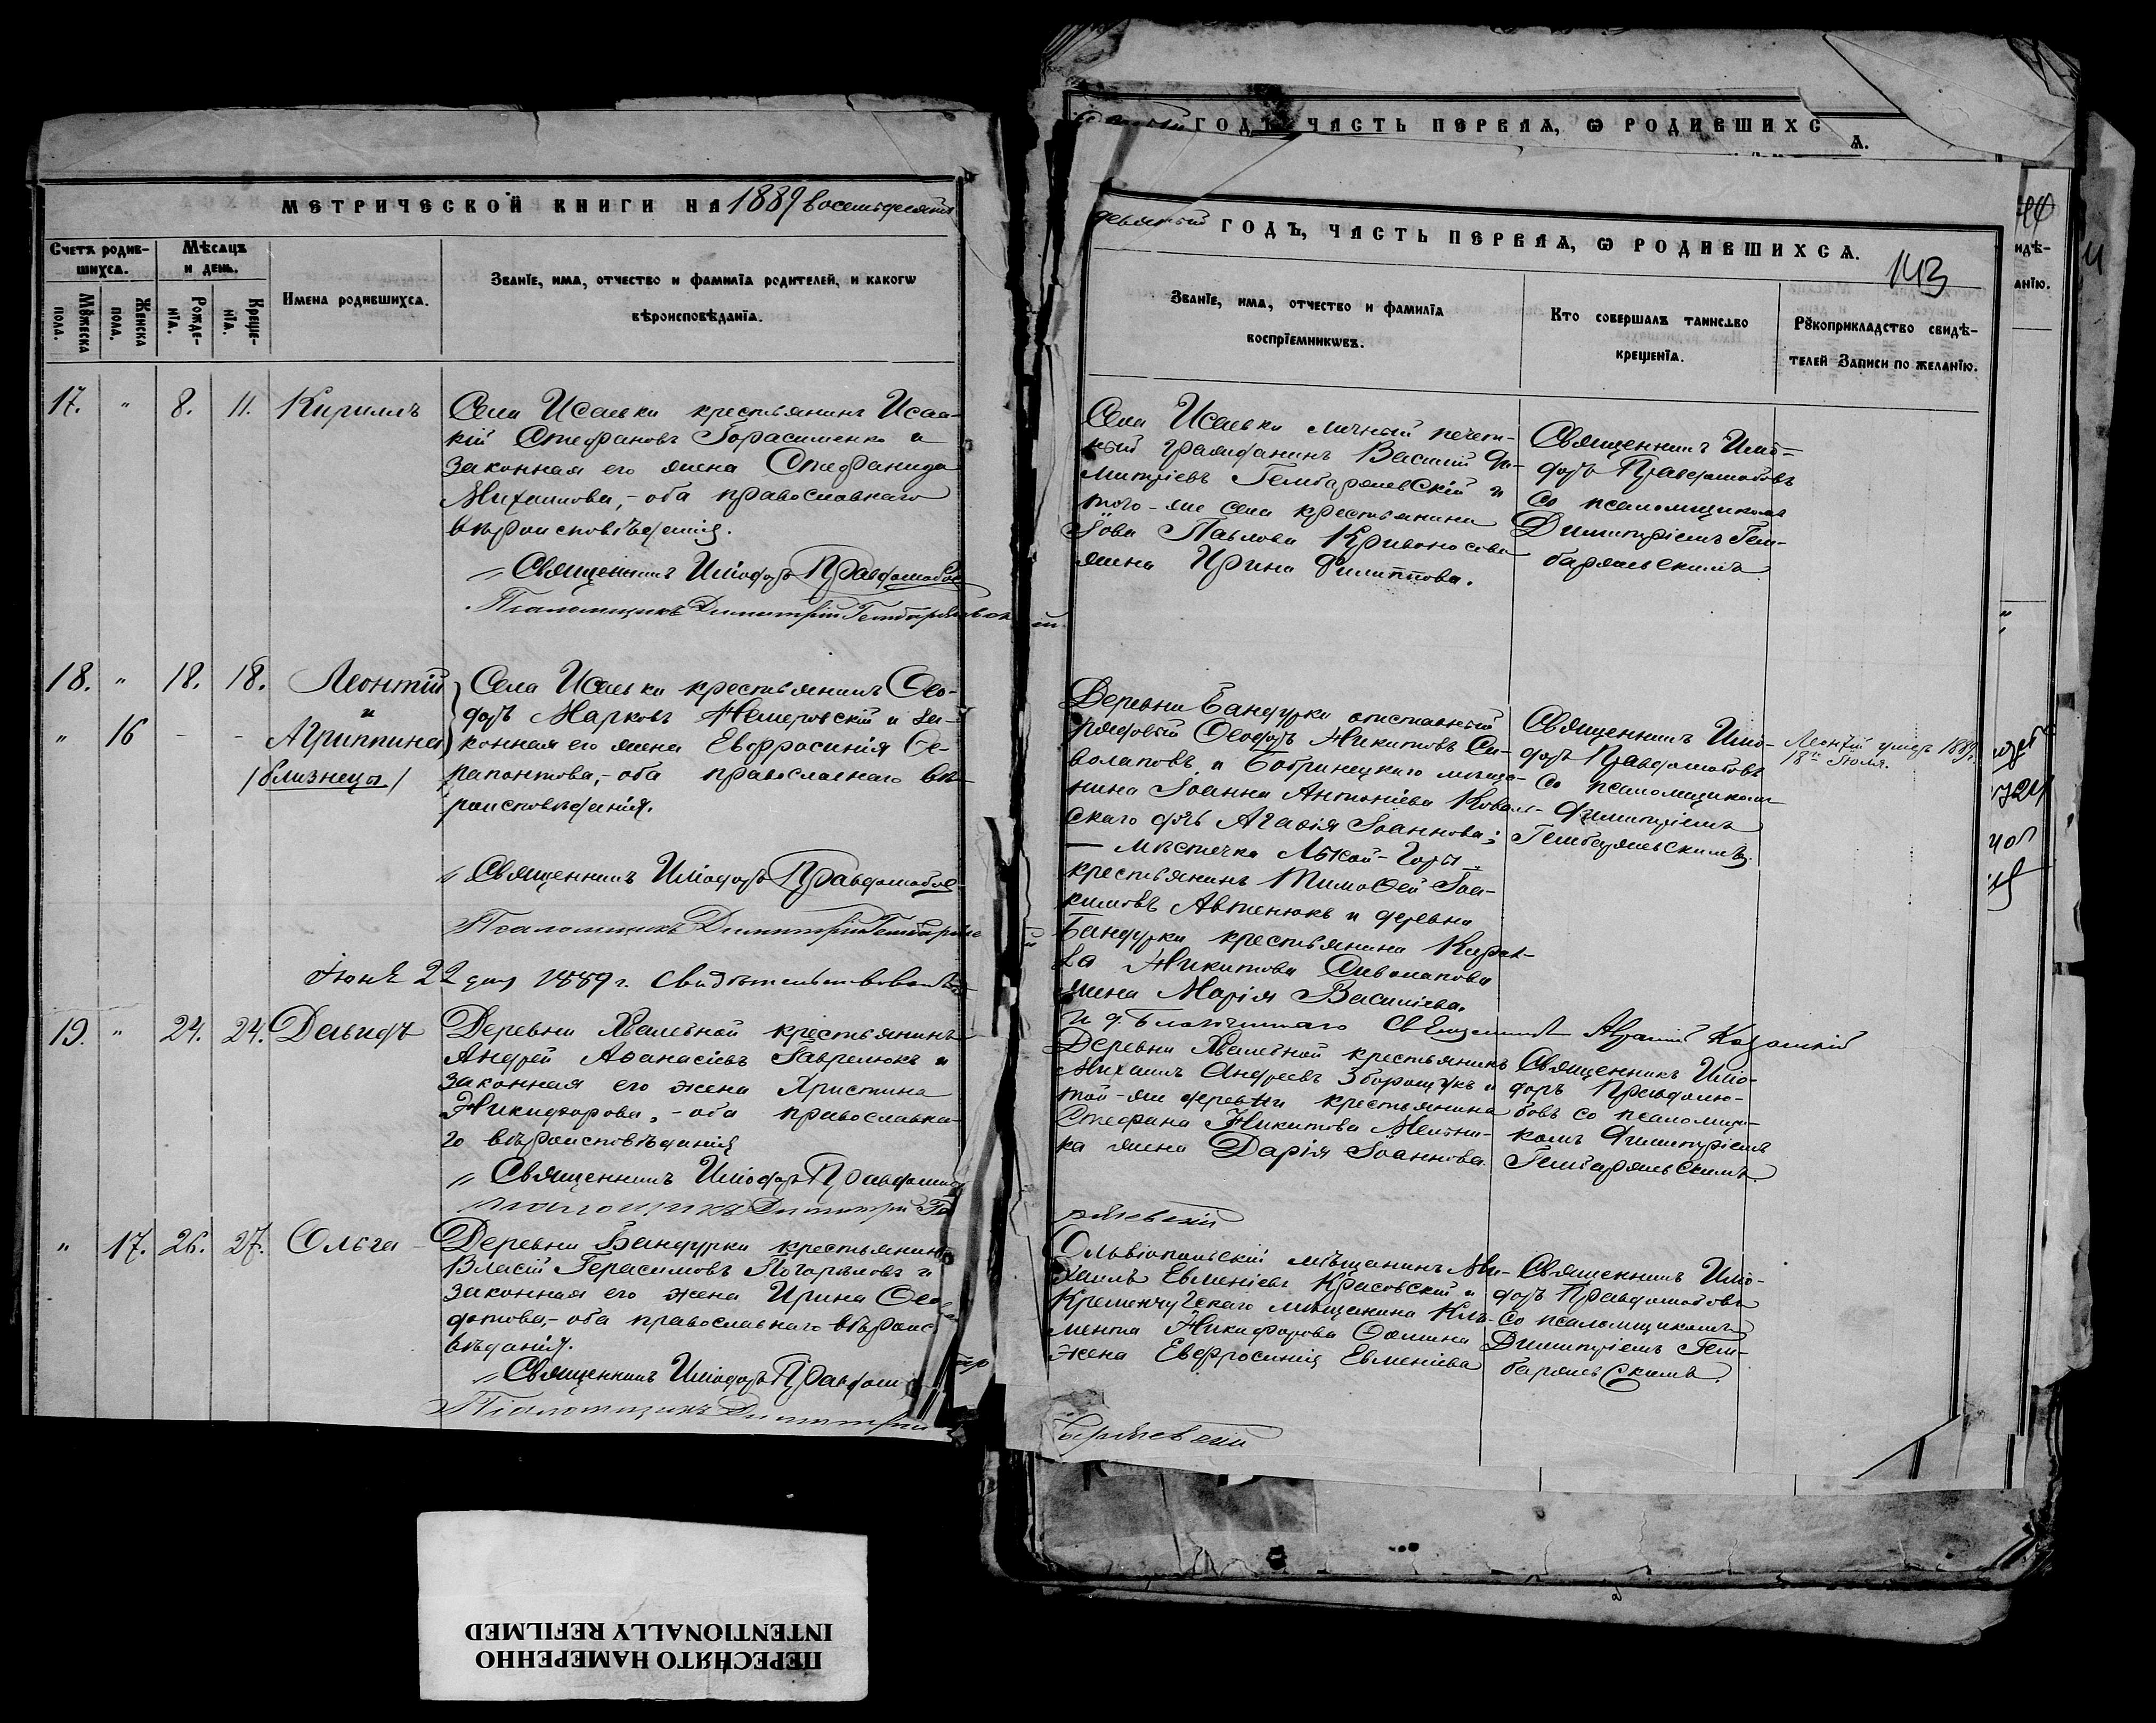 МЕТРИЧЕСКОЙ КНИГИ НА 1889 восемьдесятъ
Счетъ родив-
шихся.
Мѣсяцъ
и день.
Мꙋжеска
пола.
Женска
пола.
Рожде-
нїѧ.
Креще-
нїѧ.
Имена родившихсѧ.
Званїе, имѧ, отчество и фамилїѧ родителей, и какогѡ
вѣроисповѣданїѧ.
17. " 8. 11. Кириллъ
Села Исаевки крестьянинъ Исаа-
кій Стефановъ Гарасименко и
законная его жена Стефанида
Михаилова, - оба православнаго
вѣроисповѣданія.
Священникъ Иліодоръ Правдолюбов
Псаломщикъ Димитрій
18. " 18. 18. Леонтій
и
" 16 - - Агриппина
/близнецы/
Села Исаевки крестьянинъ Ѳео-
доръ Марковъ и за-
конная его жена Евфросинія Ѳе-
рапонтова, - оба православнаго вѣ-
роисповѣданія.
Священникъ Иліодоръ Правдолюбов
Псаломщикъ Димитрій
Іюня 22 дня 1889 г. свидѣтельствовалъ
19. " 24. 24. Давидъ
Деревни крестьянинъ
Андрей Аѳанасіевъ Гаврелюкъ и
законная его жена Христина
Никифорова, - оба православна-
го вѣроисповѣданія
Священникъ Иліодоръ Правдолюб
Псаломщикъ Димитрій
" 17. 26. 27. Ольга
Деревни Бандурки крестьянинъ
Власій Герасимовъ и
законная его жена Ирина Ѳео-
дотова, - оба православнаго вѣроис
вѣданія.
Священникъ Иліодоръ Правдолюб
Псаломщикъ Димитрій
ГОДЪ, ЧАСТЬ ПЕРВАѦ, Ѡ РОДИВШИХС
Ѧ.
девятый ГОДЪ, ЧАСТЬ ПЕРВАѦ, Ѡ РОДИВШИХСѦ.
143
Званїе, имѧ, отчество и фамилїѧ
воспрїемникѡвъ.
Кто совершалъ таинство
крещенїѧ.
Рꙋкоприкладство свидѣ-
телей Записи по желанїю.
Села Исаевки личный почет-
ный гражданинъ Василій Ди-
митріевъ и
того-же села крестьянина
Іова Павлова Кривоносова
жена Ирина Филиппова.
Священникъ Иліо-
доръ Правдолюбовъ
со псаломщикомъ
Димитріемъ
Деревни Бандурки отставный
рядовый Ѳеодоръ Никитовъ Си-
волаповъ и Бобринецкаго мѣща-
нина Іоанна Антоніева Коваль-
скаго дочь Агаѳія Іоаннова;
- мѣстечка Лысой-Горы
крестьянинъ Тимоѳей Іоа-
кимовъ Авменюкъ и деревни
Бандурки крестьянина
Никитова Сиволапова
жена Марія Василіева.
Священникъ Иліо-
доръ Правдолюбовъ
со псаломщикомъ
Димитріемъ
Леонтій умеръ 1889
18 Іюля.
И. д. Благочиннаго Священникъ
Деревни крестьянинъ
Михаилъ Андреевъ Зборощукъ и
той-же деревни крестьянина
Стефана Никитова Мельни-
ка жена Дарія Іоаннова.
Священникъ Иліо-
доръ Правдолю-
бовъ со псаломщи-
комъ Димитріемъ
Ольвіопольскій мѣщанинъ Ми-
хаилъ Евменіевъ Красовскій и
Кременчугскаго мѣщанина Кли-
мента Никифорова Ѳомина
жена Евфросинія Евменіева
Священникъ Иліо-
доръ Правдолюбовъ
со псаломщикомъ
Димитріемъ
идѣ-
анїю.
ПЕРЕСНЯТО НАМЕРЕННО
INTENTIONALLY REFILMED